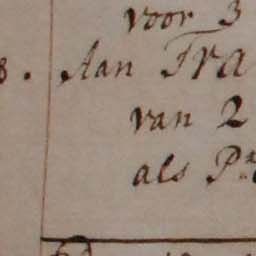 voor 3
8. Aan Tra
van 2
als P